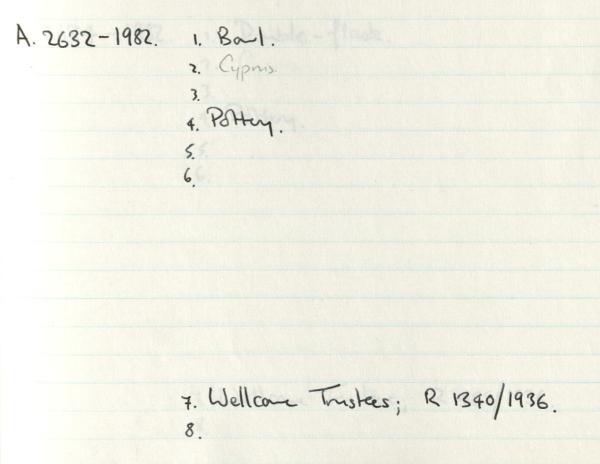 A. 2632-1982. 1. Bowl.
2. Cyprus.
3.
4. Pottery.
5.
6.
7. Wellcome Trustees; R 1340/1936.
8.